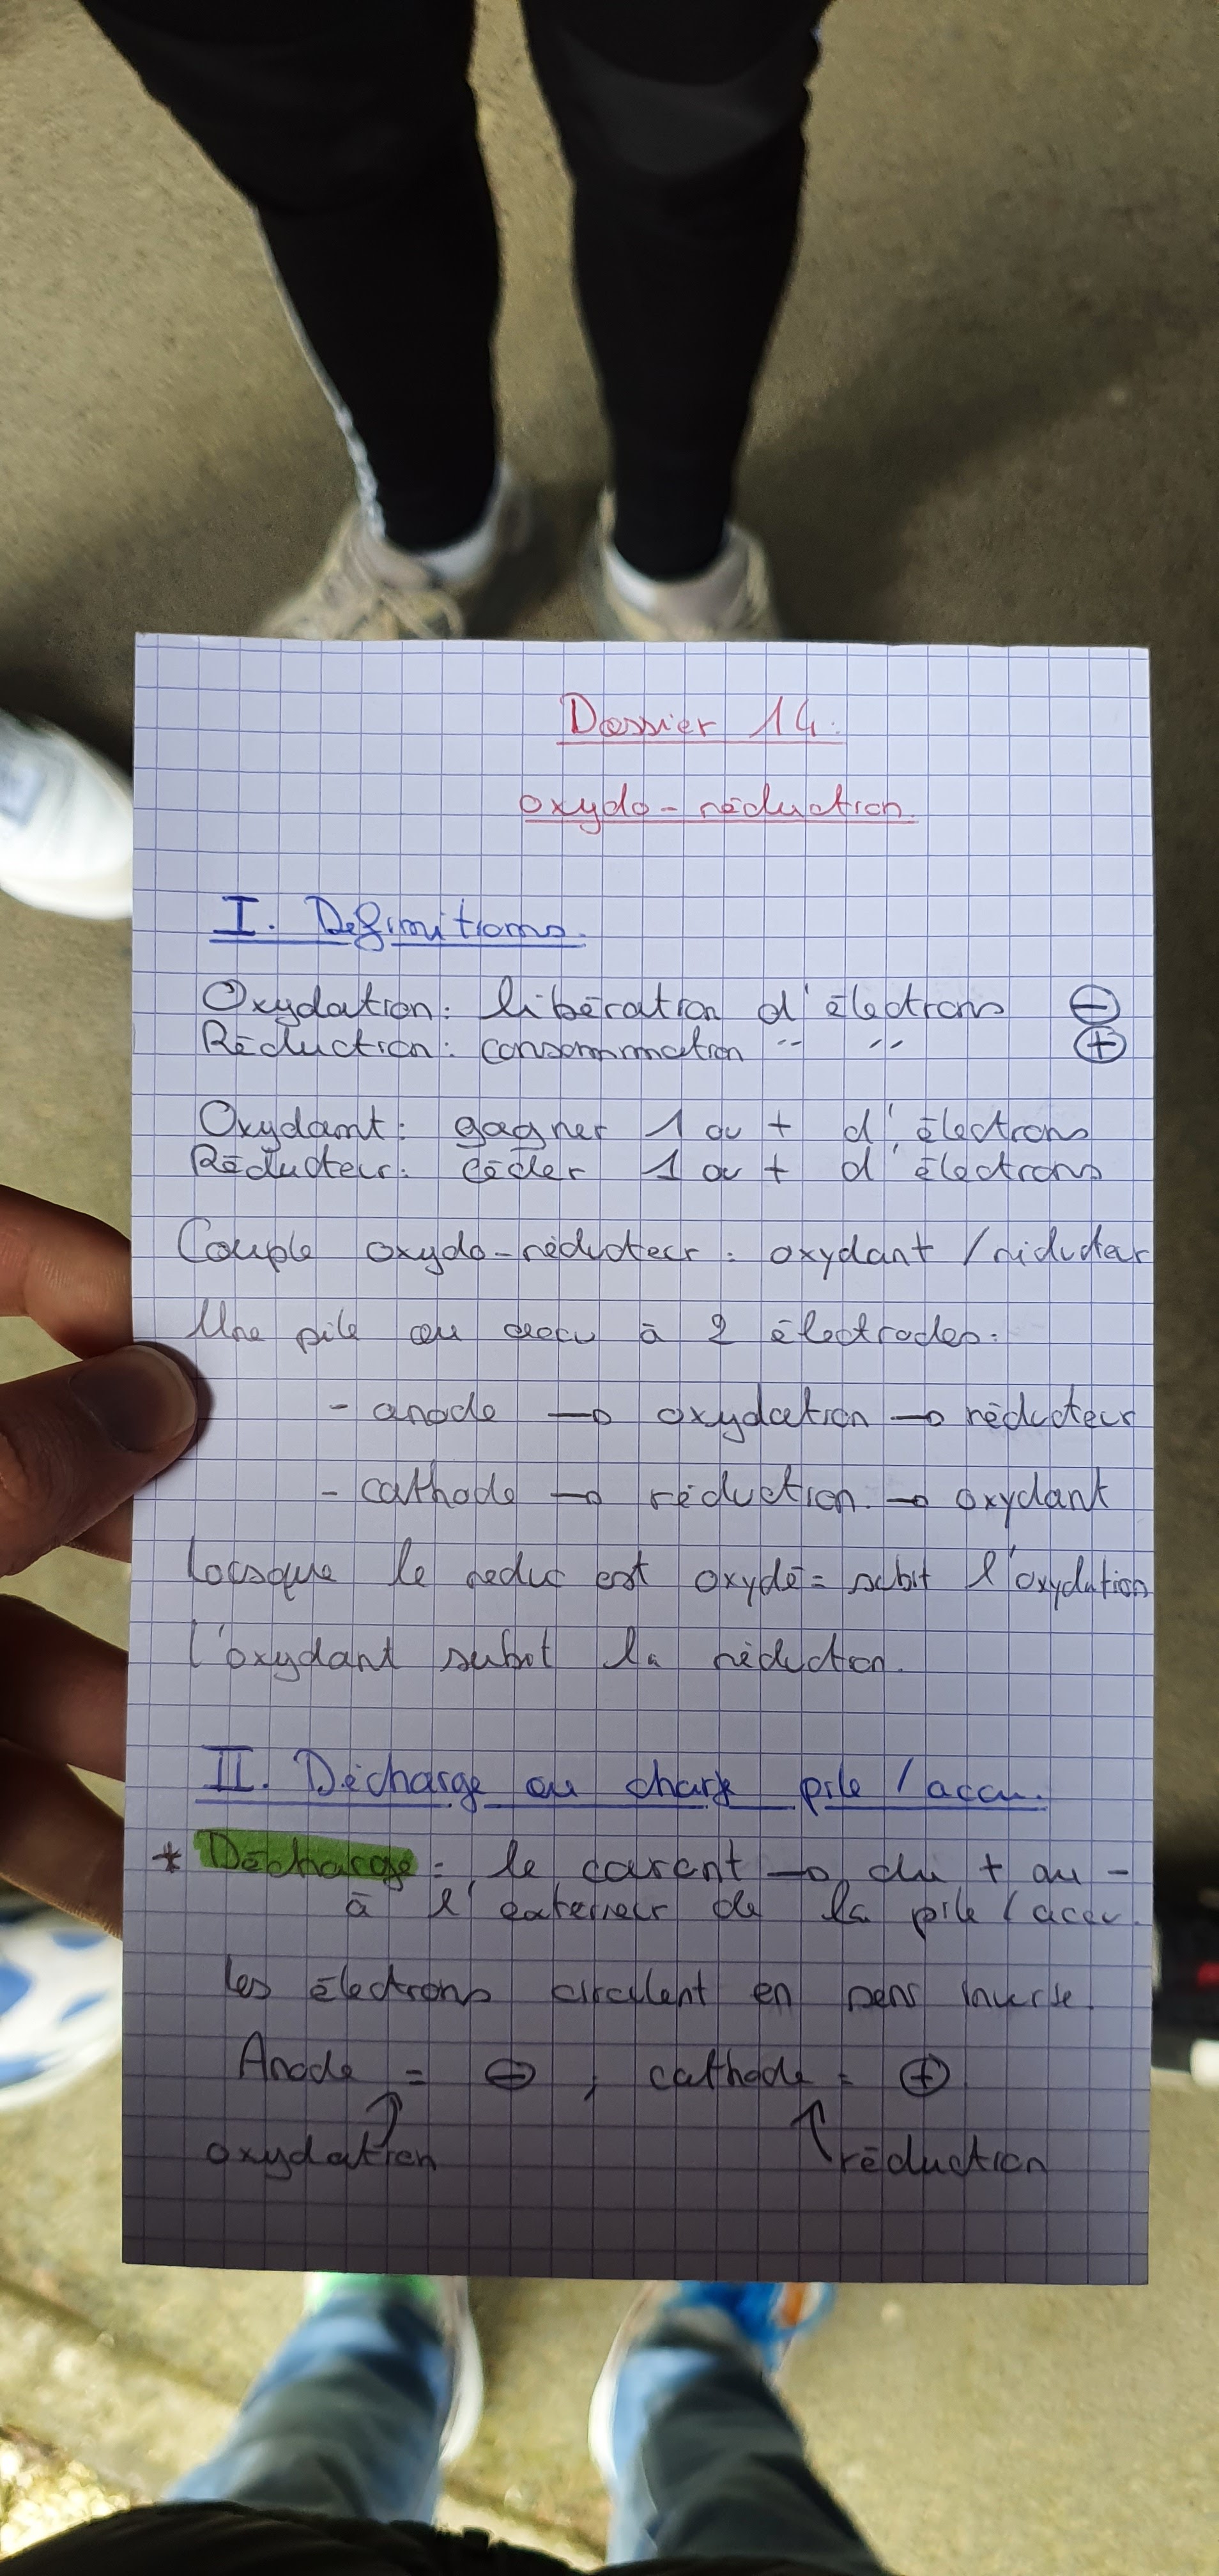 Dossier 14.
oxydo-réduction.
I. Définitions.
Oxydation: libération d'électrons ⊖
Réduction: consommation -- -- ⊕
Oxydant: gagner 1 ou + d'électrons
Réducteur: céder 1 ou + d'électrons
Couple oxydo-réducteur: oxydant / réducteur
Une pile ou accu à 2 électrodes:
- anode → oxydation → réducteur
- cathode → réduction → oxydant
Lorsque le reduc est oxydé = subit l'oxydation
L'oxydant subit la réduction.
II. Décharge ou charge pile / accu.
* Décharge: le courent → du + au -
à l'exterieur de la pile / accu.
les électrons circulent en sens inverse.
Anode = ⊖ ; cathode = ⊕
oxydation réduction